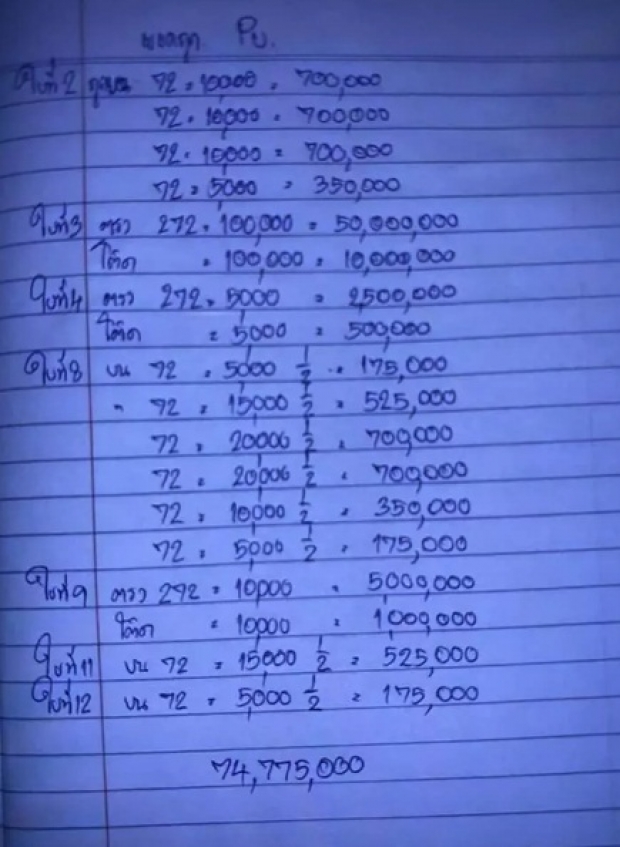 ยอดถูก Pu.
ใบที่2 ถูกบน 72 = 10,000 = 700,000
72 = 10,000 = 700,000
72 = 10,000 = 700,000
72 = 5,000 = 350,000
ใบที่3 ตรง 272 = 100,000 = 50,000,000
โต๊ด = 100,000 = 10,000,000
ใบที่4 ตรง 272 = 5,000 = 2,500,000
โต๊ด = 5,000 = 500,000
ใบที่8 บน 72 = 5,000 1/2 = 175,000
" 72 = 15,000 1/2 = 525,000
72 = 20,000 1/2 = 700,000
72 = 20,000 1/2 = 700,000
72 = 10,000 1/2 = 350,000
72 = 5,000 1/2 = 175,000
ใบที่9 ตรง 272 = 10,000 = 5,000,000
โต๊ด = 10,000 = 1,000,000
ใบที่11 บน 72 = 15,000 1/2 = 525,000
ใบที่12 บน 72 = 5,000 1/2 = 175,000
74,775,000